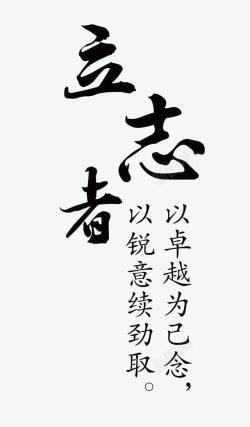 立志者
以卓越为己念，
以锐意续劲取。